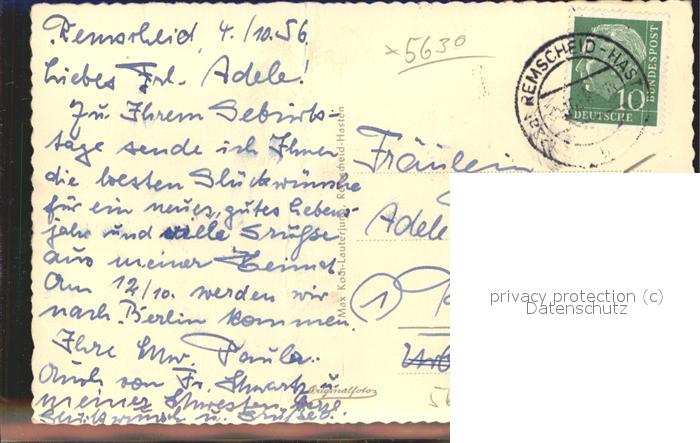 Remscheid, 4./10.56.
Liebes Frl. Adele!
Zu Ihrem Geburts-
tage sende ich Ihnen
die besten Glückwünsche
für ein neues, gutes Lebens-
jahr und viele Grüße
aus meiner Heimat.
Am 12/10. werden wir
nach Berlin kommen.
Ihre Paula.
Auch von Fr. Schwartz u.
meiner Schwester herzl.
Glückwunsch u. Grüße.
Max Koch-Lauterjung, Remscheid-Hasten
Originalfoto
x5630
REMSCHEID-HAS
10
DEUTSCHE
BUNDESPOST
Fräulein
Adele
1
privacy protection (c)
Datenschutz